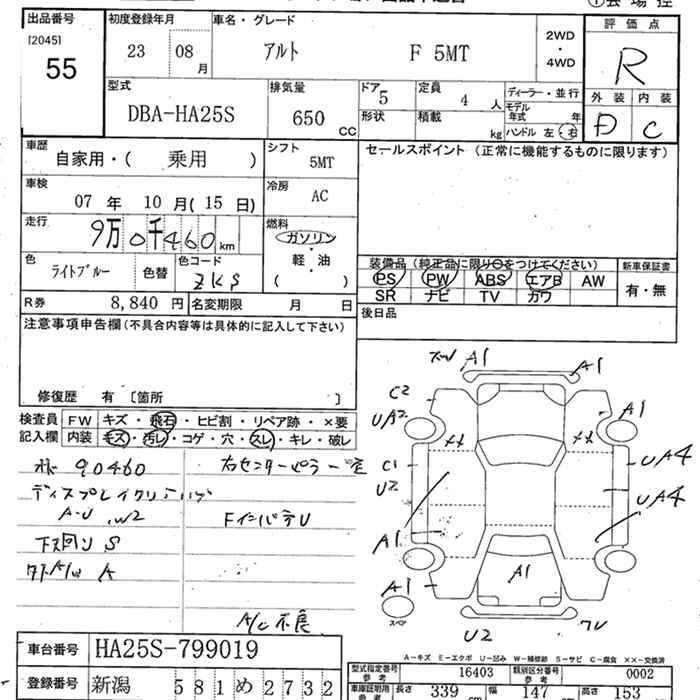 出品番号
[2045]
55
初度登録年月
23 08 月
車名・グレード
アルト F 5MT
2WD
・
4WD
評価点
R
外装 内装
D C
型式
DBA-HA25S
排気量
650 CC
ドア 5
定員 4 人
形状
積載 kg
ディーラー・並行
モデル年式 年
ハンドル 左・右
車歴
自家用・( 乗用 )
シフト
5MT
セールスポイント (正常に機能するものに限ります)
車検
07 年 10 月( 15 日)
冷房
AC
走行
9万0千460 km
燃料
ガソリン
・
軽・油
・
( )
色
ライトブルー
色替
色コード
ZKS
装備品 (純正品に限り○をつけてください)
PS PW ABS エアB AW
SR ナビ TV カワ
新車保証書
有・無
R券 8,840 円
名変期限 月 日
後日品
注意事項申告欄(不具合内容等は具体的に記入して下さい)
修復歴 有 〔箇所 〕
検査員
記入欄
FW キズ・飛石・ヒビ割・リペア跡・×要
内装 キズ・汚レ・コゲ・穴・スレ・キレ・破レ
90460
右センターピラー
A-U W2
下回り S
A
A/C不良
A1
A1
C2
UA2
A1
C1
U2
UA4
UA4
A1
A1
A1
U2
スペア
A-キズ E-エクボ U-凹み W-補修跡 S-サビ C-腐食 XX-交換済
車台番号 HA25S-799019
登録番号 新潟 581め2732
型式指定番号 参考 16403
類別区分番号 参考 0002
車庫証明用 参考
長さ 339 cm
幅 147 cm
高さ 153 cm